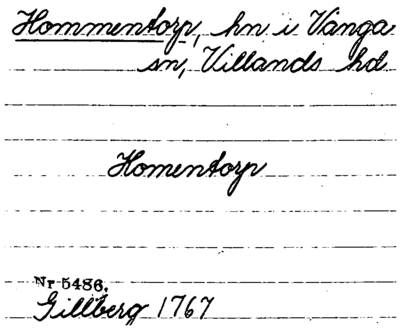 Hommentorp, hn i Vånga
sn, Villands hd
Homentorp
Nr 5486.
Gillberg 1767